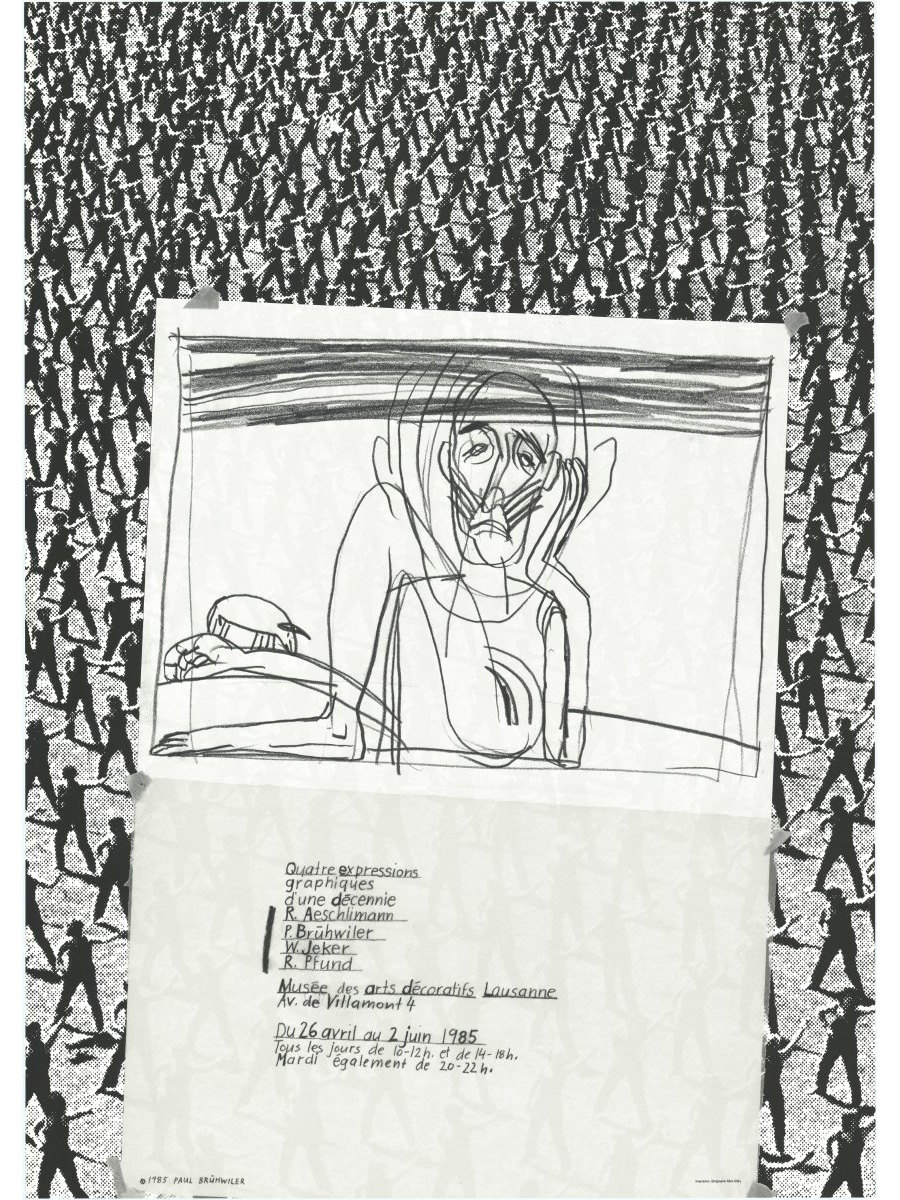 Quatre expressions
graphiques
d'une décennie
R. Aeschlimann
P. Brühwiler
W. Jeker
R. Pfund
Musée des arts décoratifs Lausanne
Av. de Villamont 4
Du 26 avril au 2 juin 1985
Tous les jours de 10-12h. et de 14-18h.
Mardi également de 20-22h.
©1985 PAUL BRÜHWILER